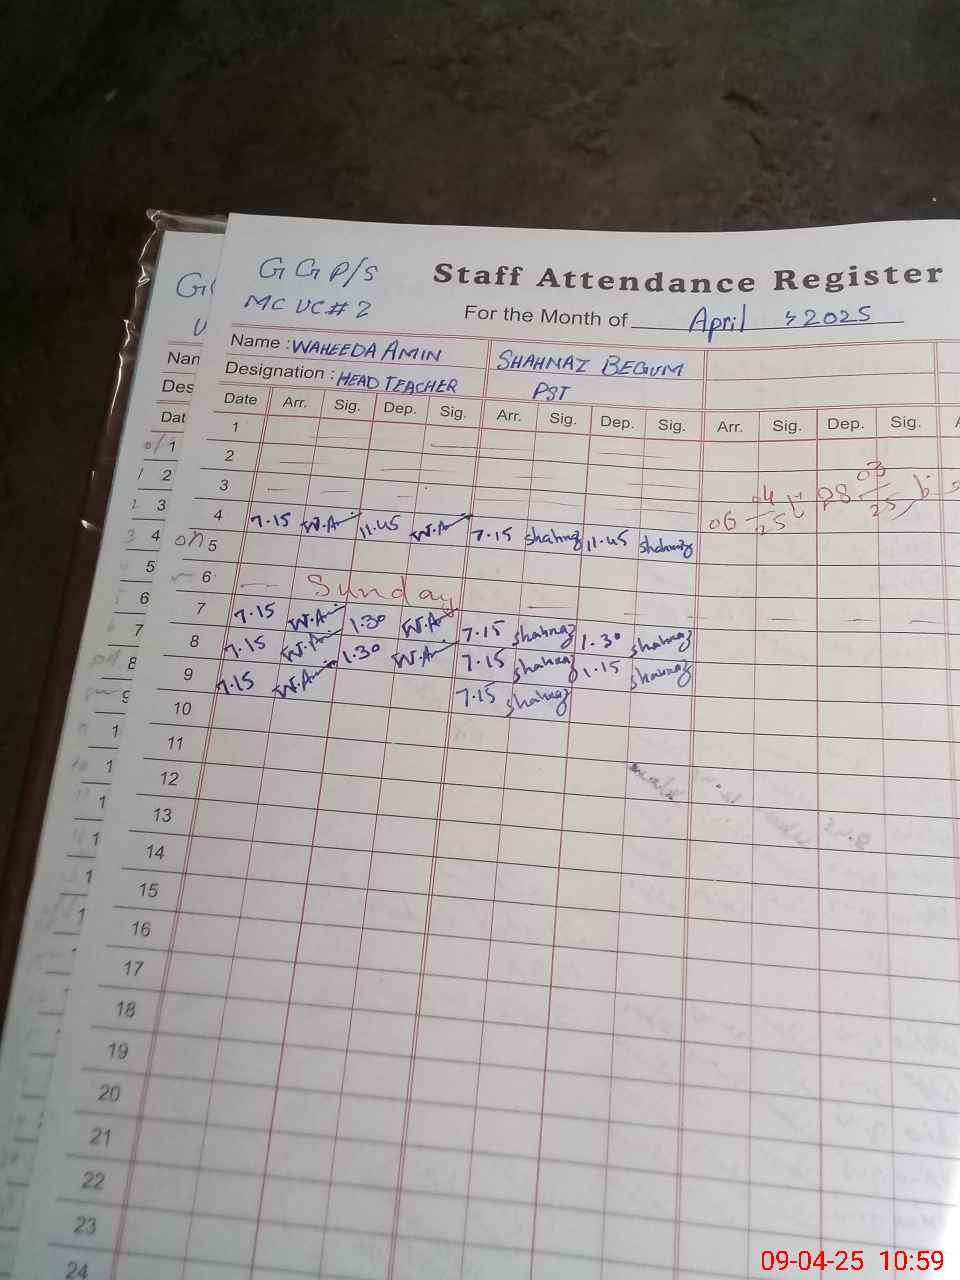 G G P/S
MC UC# 2
Staff Attendance Register
For the Month of April , 2025
Name : WAHEEDA AMIN SHAHNAZ BEGUM
Designation : HEAD TEACHER PST
Date Arr. Sig. Dep. Sig. Arr. Sig. Dep. Sig. Arr. Sig. Dep. Sig.
1
2
3
4 7.15 W.A 11.45 W.A 7.15 Shahnaz 11.45 Shahnaz 06 04/25 28 03/25
5
6 Sunday
7 7.15 W.A 1.30 W.A 7.15 Shahnaz 1.30 Shahnaz
8 7.15 W.A 1.30 W.A 7.15 Shahnaz 1.15 Shahnaz
9 7.15 W.A 7.15 Shahnaz
10
11
12
13
14
15
16
17
18
19
20
21
22
23
24
Nan
Des
Dat
1
2
3
4
5
6
7
8
9
09-04-25 10:59